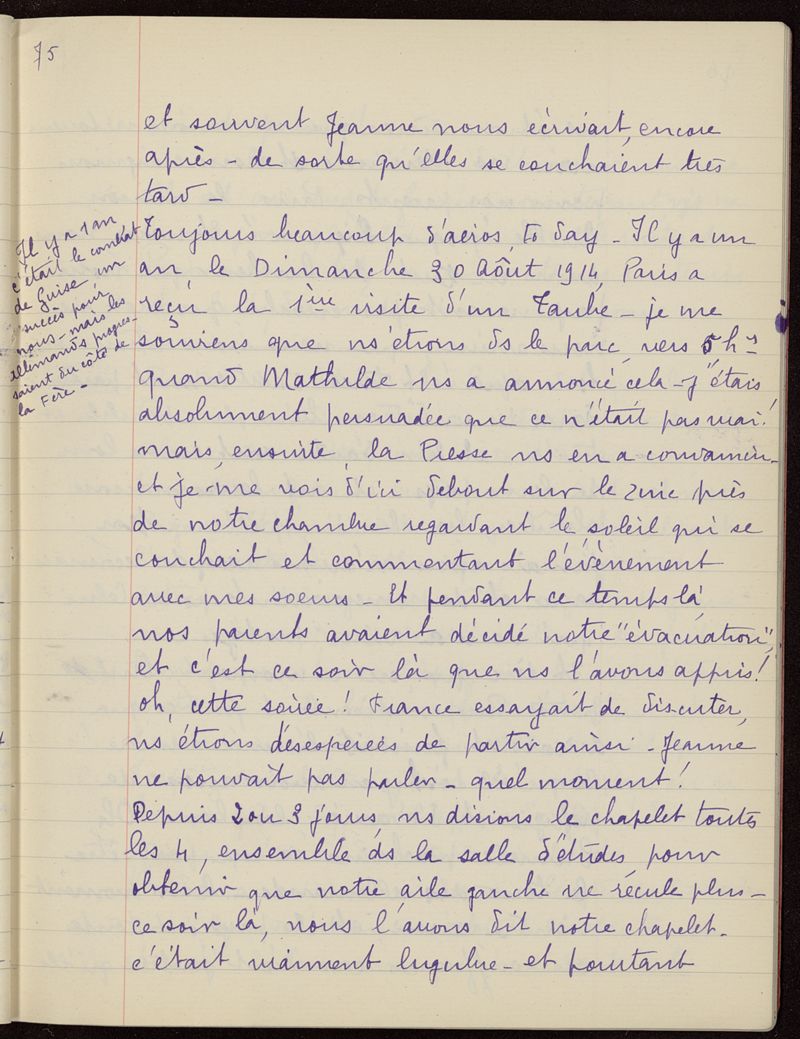 75
et souvent Jeanne nous écrivait, encore
après - de sorte qu'elles se couchaient très
tard -
Toujours beaucoup d'aéros, to day - Il y a un
an le Dimanche 30 Août 1914, Paris a
reçu la 1ère visite d'un Taube - je me
souviens que ns étions ds le parc, vers 5 hrs
quand Mathilde ns a annoncé cela - j'étais
absolument persuadée que ce n'était pas vrai!
mais, ensuite, la Presse ns en a convaincu -
et je me vois d'ici debout sur le zinc près
de notre chambre regardant le soleil qui se
couchait et commentant l'évènement
avec mes soeurs - Et pendant ce temps là,
nos parents avaient décidé notre "évacuation",
et c'est ce soir là que ns l'avons appris!
oh, cette soirée! France essayait de discuter,
ns étions désespérées de partir ainsi - Jeanne
ne pouvait pas parler - quel moment!
Depuis 2 ou 3 jours, ns disions le chapelet toutes
les 4, ensemble ds la salle d'études, pour
obtenir que notre aile gauche ne recule plus -
ce soir là, nous l'avons dit notre chapelet -
c'était vraiment lugubre - et pourtant
Il y a 1 an
c'était le combat
de Guise, un
succès pour
nous - mais les
allemands progres-
saient du côté de
la Fère -